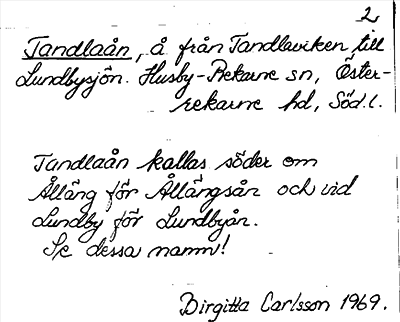 2
Tandlaån, å från Tandlaviken till
Lundbysjön. Husby-Rekarne sn, Öster-
rekarne hd, Söd.l.
Tandlaån kallas söder om
Ålläng för Ållängsån och vid
Lundby för Lundbyån.
Se dessa namn!
Birgitta Carlsson 1969.